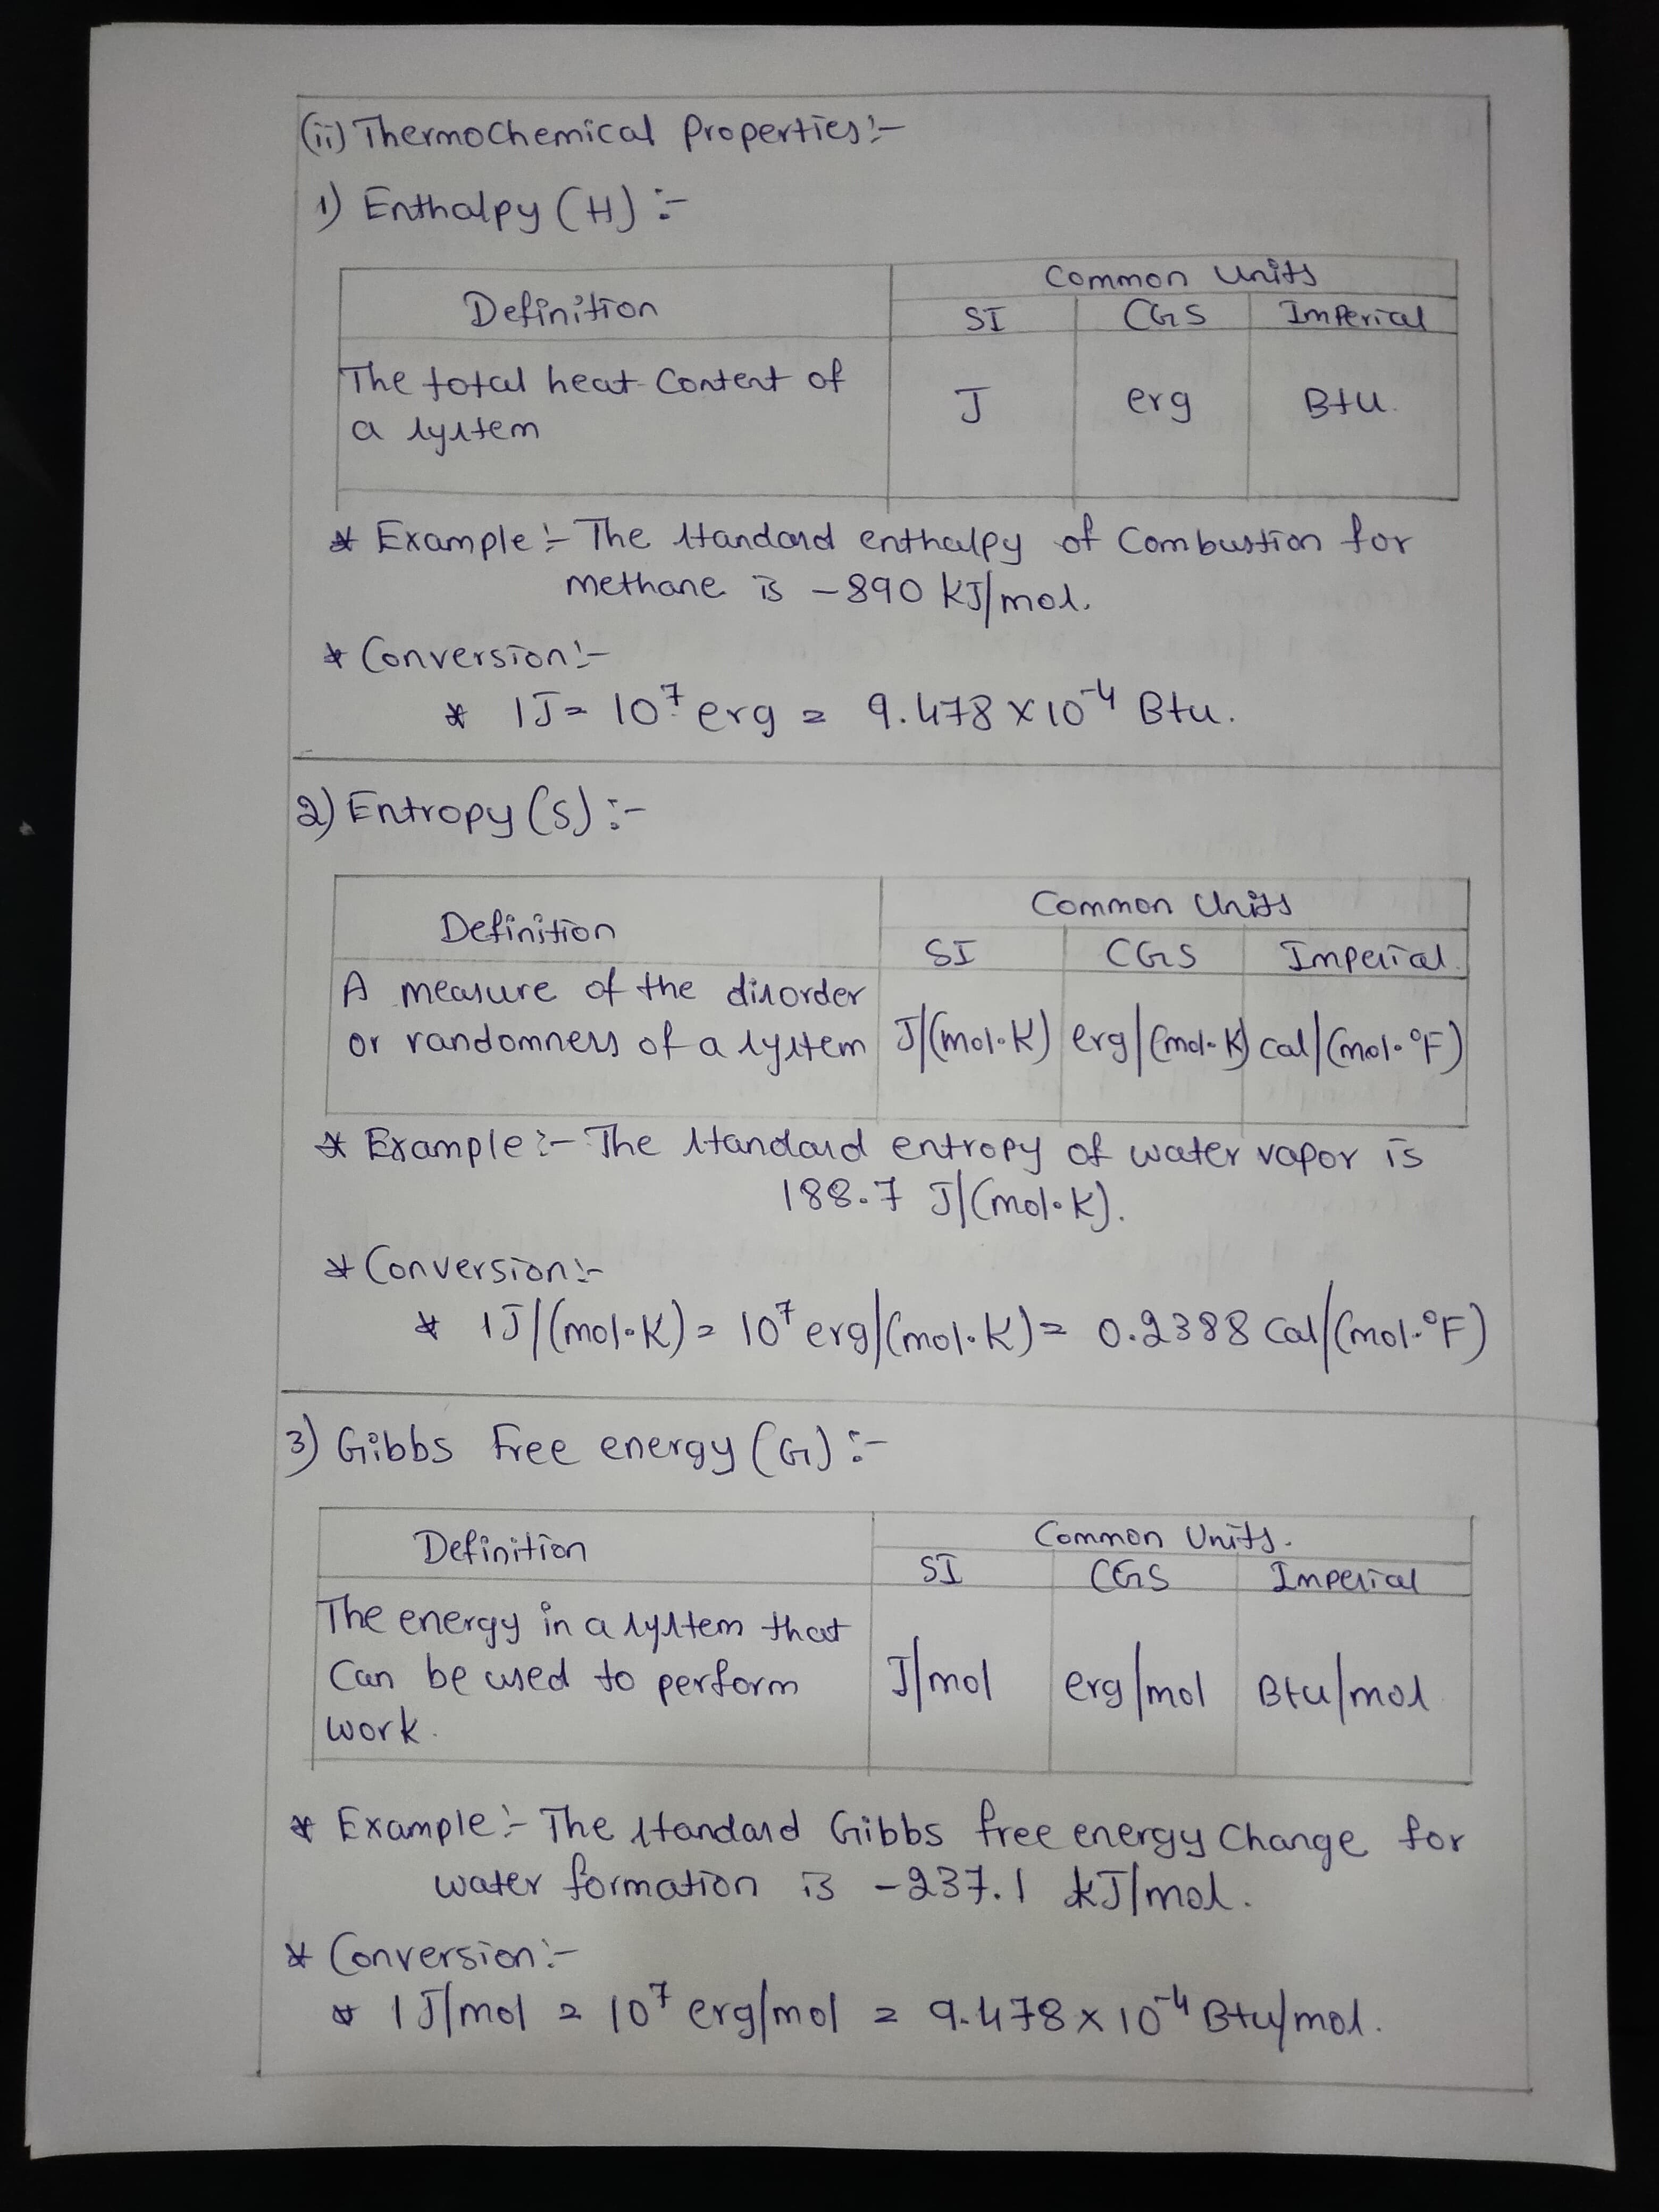 (ii) Thermochemical Properties:-
1) Enthalpy (H) :-
Definition
Common Units
SI CGS Imperial
The total heat content of
a system
J erg Btu.
* Example:- The standard enthalpy of combustion for
methane is -890 kJ/mol.
* Conversion:-
* 1J = 10⁷ erg = 9.478 × 10⁻⁴ Btu.
2) Entropy (S) :-
Definition
Common Units
SI CGS Imperial
A measure of the disorder
or randomness of a system
J/(mol·K) erg/(mol·K) cal/(mol·°F)
* Example:- The standard entropy of water vapor is
188.7 J/(mol·K).
* Conversion:-
* 1J/(mol·K) = 10⁷ erg/(mol·K) = 0.2388 Cal/(mol·°F)
3) Gibbs Free energy (G) :-
Definition
Common Units.
SI CGS Imperial
The energy in a system that
Can be used to perform
work.
J/mol erg/mol Btu/mol
* Example:- The standard Gibbs free energy Change for
water formation is -237.1 kJ/mol.
* Conversion:-
* 1 J/mol = 10⁷ erg/mol = 9.478 × 10⁻⁴ Btu/mol.